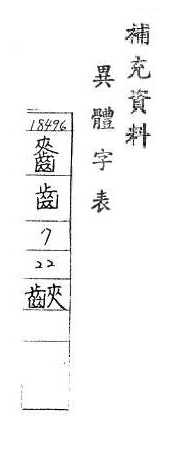 補充資料
異體字表
18496
齒
7
22